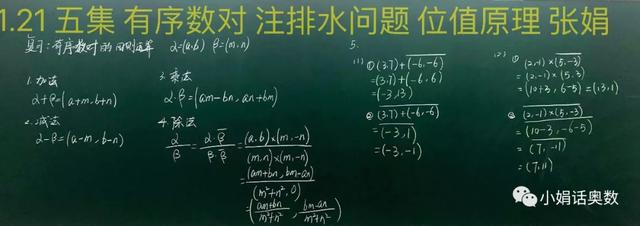 1.21 五集 有序数对 注排水问题 位值原理 张娟
复习:有序数对的四则运算 α=(a,b) β=(m,n)
1. 加法
α+β=(a+m,b+n)
2. 减法
α-β=(a-m,b-n)
3. 乘法
α·β=(am-bn,an+bm)
4. 除法
α/β=α·β̅/β·β̅=(a,b)×(m,-n)/(m,n)×(m,-n)
=(am+bn,bm-an)/(m²+n²,0)
=(am+bn/m²+n²,bm-an/m²+n²)
5.
(1) ① (3,7)+(-6,-6)
=(3,7)+(-6,6)
=(-3,13)
② (3,7)+(-6,-6)
=(-3,1)
=(-3,-1)
(2) ① (2,-1)×(5,-3)
=(2,-1)×(5,3)
=(10+3,6-5)=(13,1)
② (2,-1)×(5,-3)
=(10-3,-6-5)
=(7,-11)
=(7,11)
小娟话奥数